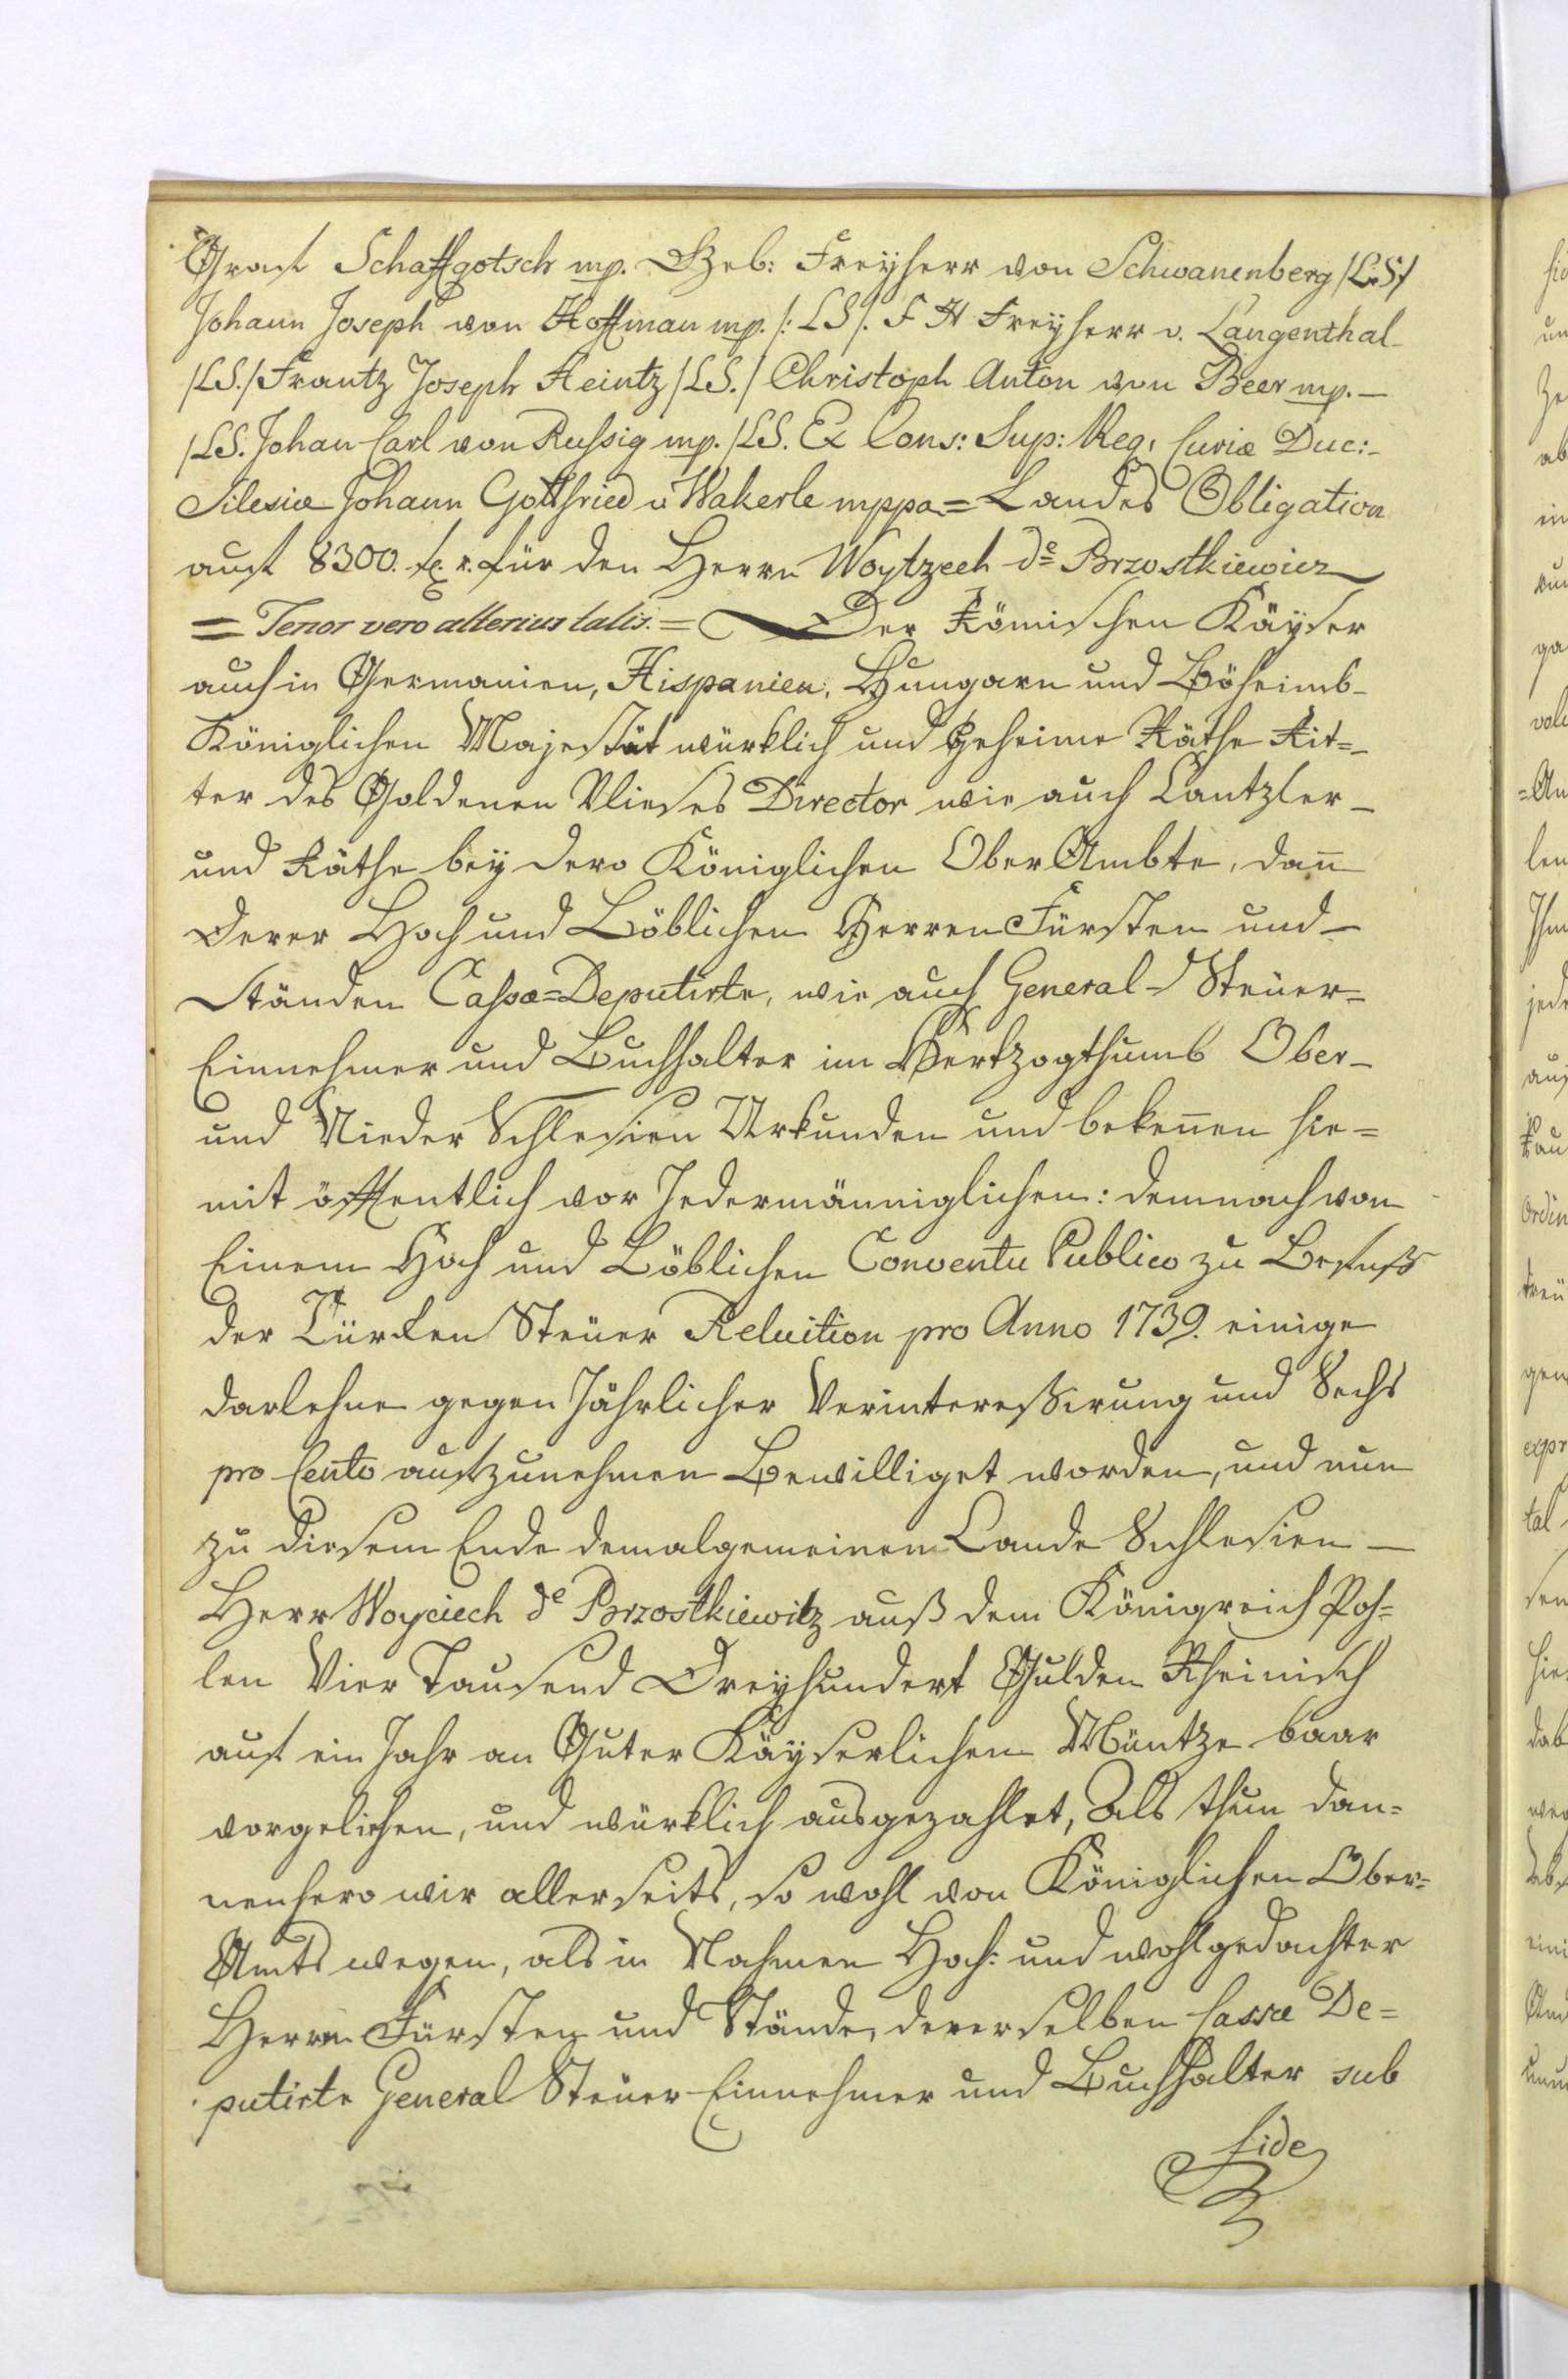 Graf Schaffgotsch mp. Szeb: Freyherr von Schwanenberg /L:S/
Johann Joseph von Hoffman mp. /: LS /. F H Freyherr v. Langenthal
/LS./ Frantz Joseph Heintz /LS./ Christoph Anton von Beer mp. —
/LS. Johan Carl von Russig mp. /LS. Ex Cons: Sup: Reg: Curiæ Duc:
Silesiæ Johann Gottfried v Wakerle mppa = Landes Obligation
auf 8300. f. r. für den Herrn Woytzech de Brzostkiewicz
= Tenor vero alterius talis. = Der Römischen Käyser
auch in Germanien, Hispanien, Hungarn und Böheimb
Königlichen Majestät würklich und Geheime Räthe Rit=
ter des Goldenen Vlieses Director wie auch Cantzler
und Räthe bey dero Königlichen Ober Ambte, dann
Derer Hoch und Löblichen Herren Fürsten und
Ständen Cassæ=Deputirte, wie auch General Steüer=
Einnehmer und Buchhalter im Hertzogthumb Ober
und Nieder Schlesien Urkunden und bekennen hie=
mit öffentlich vor Jedermänniglichen: demnach von
Einem Hoch und Löblichen Conventu Publico zu Behuff
der Türken Steüer Reluition pro Anno 1739. einige
darlehne gegen Jährlicher Verinteressirung und Sechs
pro Cento aufzunehmen Bewilliget worden, und nun
zu diesem Ende dem algemeinen Lande Schlesien —
Herr Woyciech de Brzostkiewitz auß dem Königreich Poh=
len Vier Tausend Dreyhundert Gulden Rheinisch
auf ein Jahr an Guter Käyserlichen Müntze baar
vorgeliehen, und würklich ausgezahlet, Als thun dan=
nenhero wir allerseits, so wohl von Königlichen Ober=
Amts wegen, als in Nahmen Hoch: und wohlgedachter
Herrn Fürsten und Stände, dererselben Cassæ De=
putirte General Steüer Einnehmer und Buchhalter sub
fide